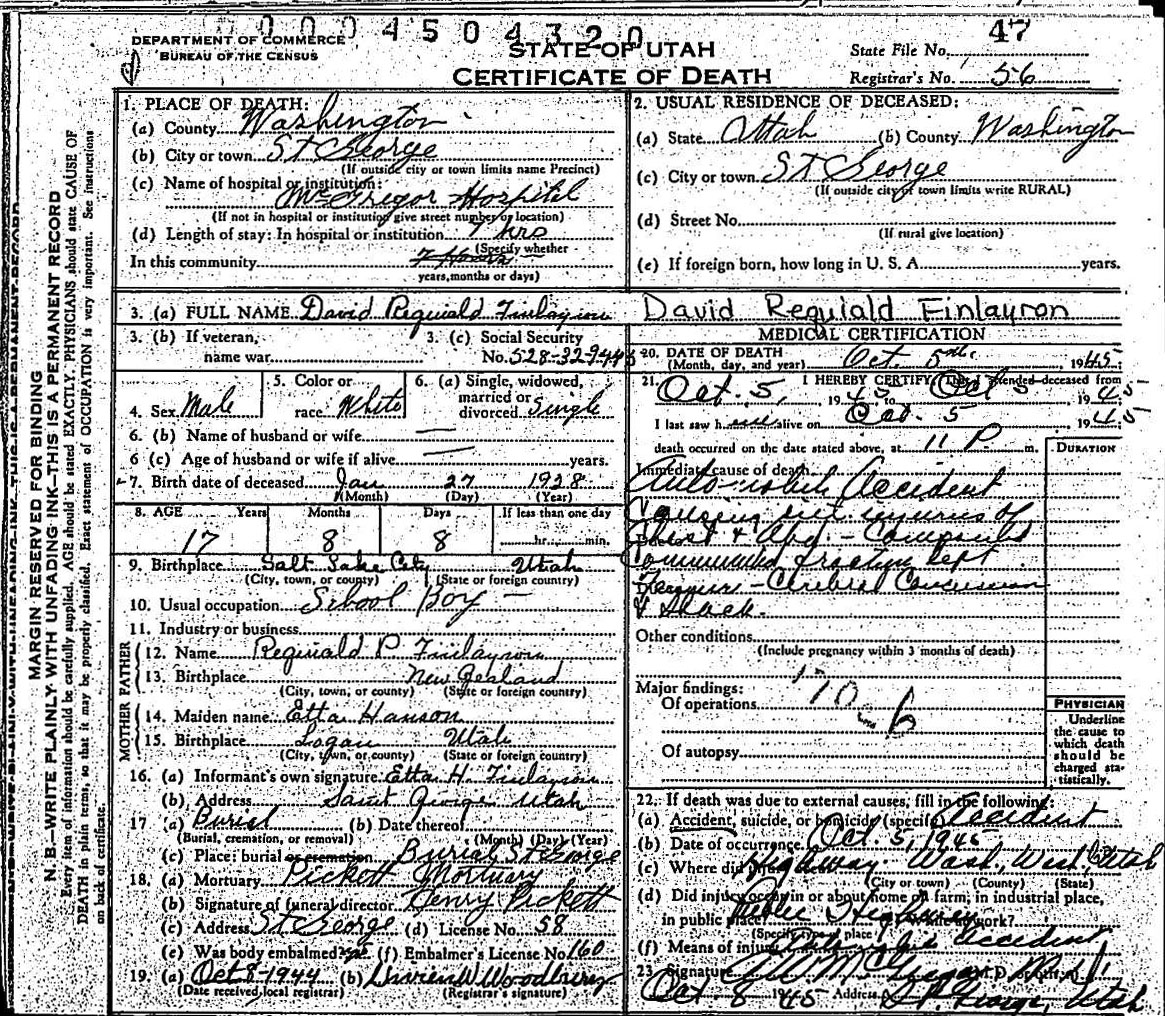 0004504320
47
DEPARTMENT OF COMMERCE
BUREAU OF THE CENSUS
STATE OF UTAH
CERTIFICATE OF DEATH
State File No.
Registrar's No. 56
MARGIN RESERVED FOR BINDING
N. B.—WRITE PLAINLY WITH UNFADING INK—THIS IS A PERMANENT RECORD
Every item of information should be carefully supplied. AGE should be stated EXACTLY. PHYSICIANS should state CAUSE OF
DEATH in plain terms, so that it may be properly classified. Exact statement of OCCUPATION is very important. See instructions
on back of certificate.
1. PLACE OF DEATH:
(a) County Washington
(b) City or town St George
(If outside city or town limits name Precinct)
(c) Name of hospital or institution:
McGregor Hospital
(If not in hospital or institution give street number or location)
(d) Length of stay: In hospital or institution 7 hrs
(Specify whether
In this community 7 Hours
years, months or days)
2. USUAL RESIDENCE OF DECEASED:
(a) State Utah (b) County Washington
(c) City or town St George
(If outside city of town limits write RURAL)
(d) Street No.
(If rural give location)
(e) If foreign born, how long in U. S. A. years.
3. (a) FULL NAME David Reguiald Finlayson David Reguiald Finlayron
3. (b) If veteran, 3. (c) Social Security
name war No. 528-32-944
4. Sex Male
5. Color or
race White
6. (a) Single, widowed,
married or
divorced Single
6. (b) Name of husband or wife —
6 (c) Age of husband or wife if alive — years.
7. Birth date of deceased Jan 27 1928
(Month) (Day) (Year)
8. AGE Years Months Days If less than one day
17 8 8 hr. min.
9. Birthplace Salt Lake City Utah
(City, town, or county) (State or foreign country)
10. Usual occupation School Boy —
11. Industry or business
FATHER
12. Name Reguiald P. Finlayson
13. Birthplace New Zealand
(City, town, or county) (State or foreign country)
MOTHER
14. Maiden name Etta Hanson
15. Birthplace Logan Utah
(City, town, or county) (State or foreign country)
16. (a) Informant's own signature Etta H. Finlayson
(b) Address Saint George Utah
17 (a) Burial (b) Date thereof
(Burial, cremation, or removal) (Month) (Day) (Year)
(c) Place: burial or cremation Burial St George
18. (a) Mortuary Pickett Mortuary
(b) Signature of funeral director Henry Pickett
(c) Address St George (d) License No. 58
(e) Was body embalmed yes (f) Embalmer's License No. 160
19. (a) Oct 8-1944 (b) W. Woodbury
(Date received local registrar) (Registrar's signature)
MEDICAL CERTIFICATION
20. DATE OF DEATH
(Month, day, and year) Oct. 5th 1945
21. I HEREBY CERTIFY, That I attended deceased from
Oct. 5, 1945 to Oct 5 1945
I last saw him alive on Oct. 5 1945
death occurred on the date stated above, at 11 P. m.
DURATION
Immediate cause of death
Automobile Accident
Causing int injuries of
Chest & Abd. — Compound
Comminuted fracture left
Femur — Cerebral Concussion
& Shock.
Other conditions
(Include pregnancy within 3 months of death)
Major findings:
Of operations
170 b
Of autopsy
PHYSICIAN
Underline
the cause to
which death
should be
charged sta-
tistically.
22. If death was due to external causes, fill in the following:
(a) Accident, suicide, or homicide (specify) Accident
(b) Date of occurrence Oct. 5, 1945
(c) Where did injury occur? Highway Wash, Wash, Utah
(City or town) (County) (State)
(d) Did injury occur in or about home on farm, in industrial place,
in public place? Public Highway work?
(Specify type of place)
(f) Means of injury Automobile Accident
23. Signature McGregor M.D.
Oct. 8 1945 Address St. George, Utah